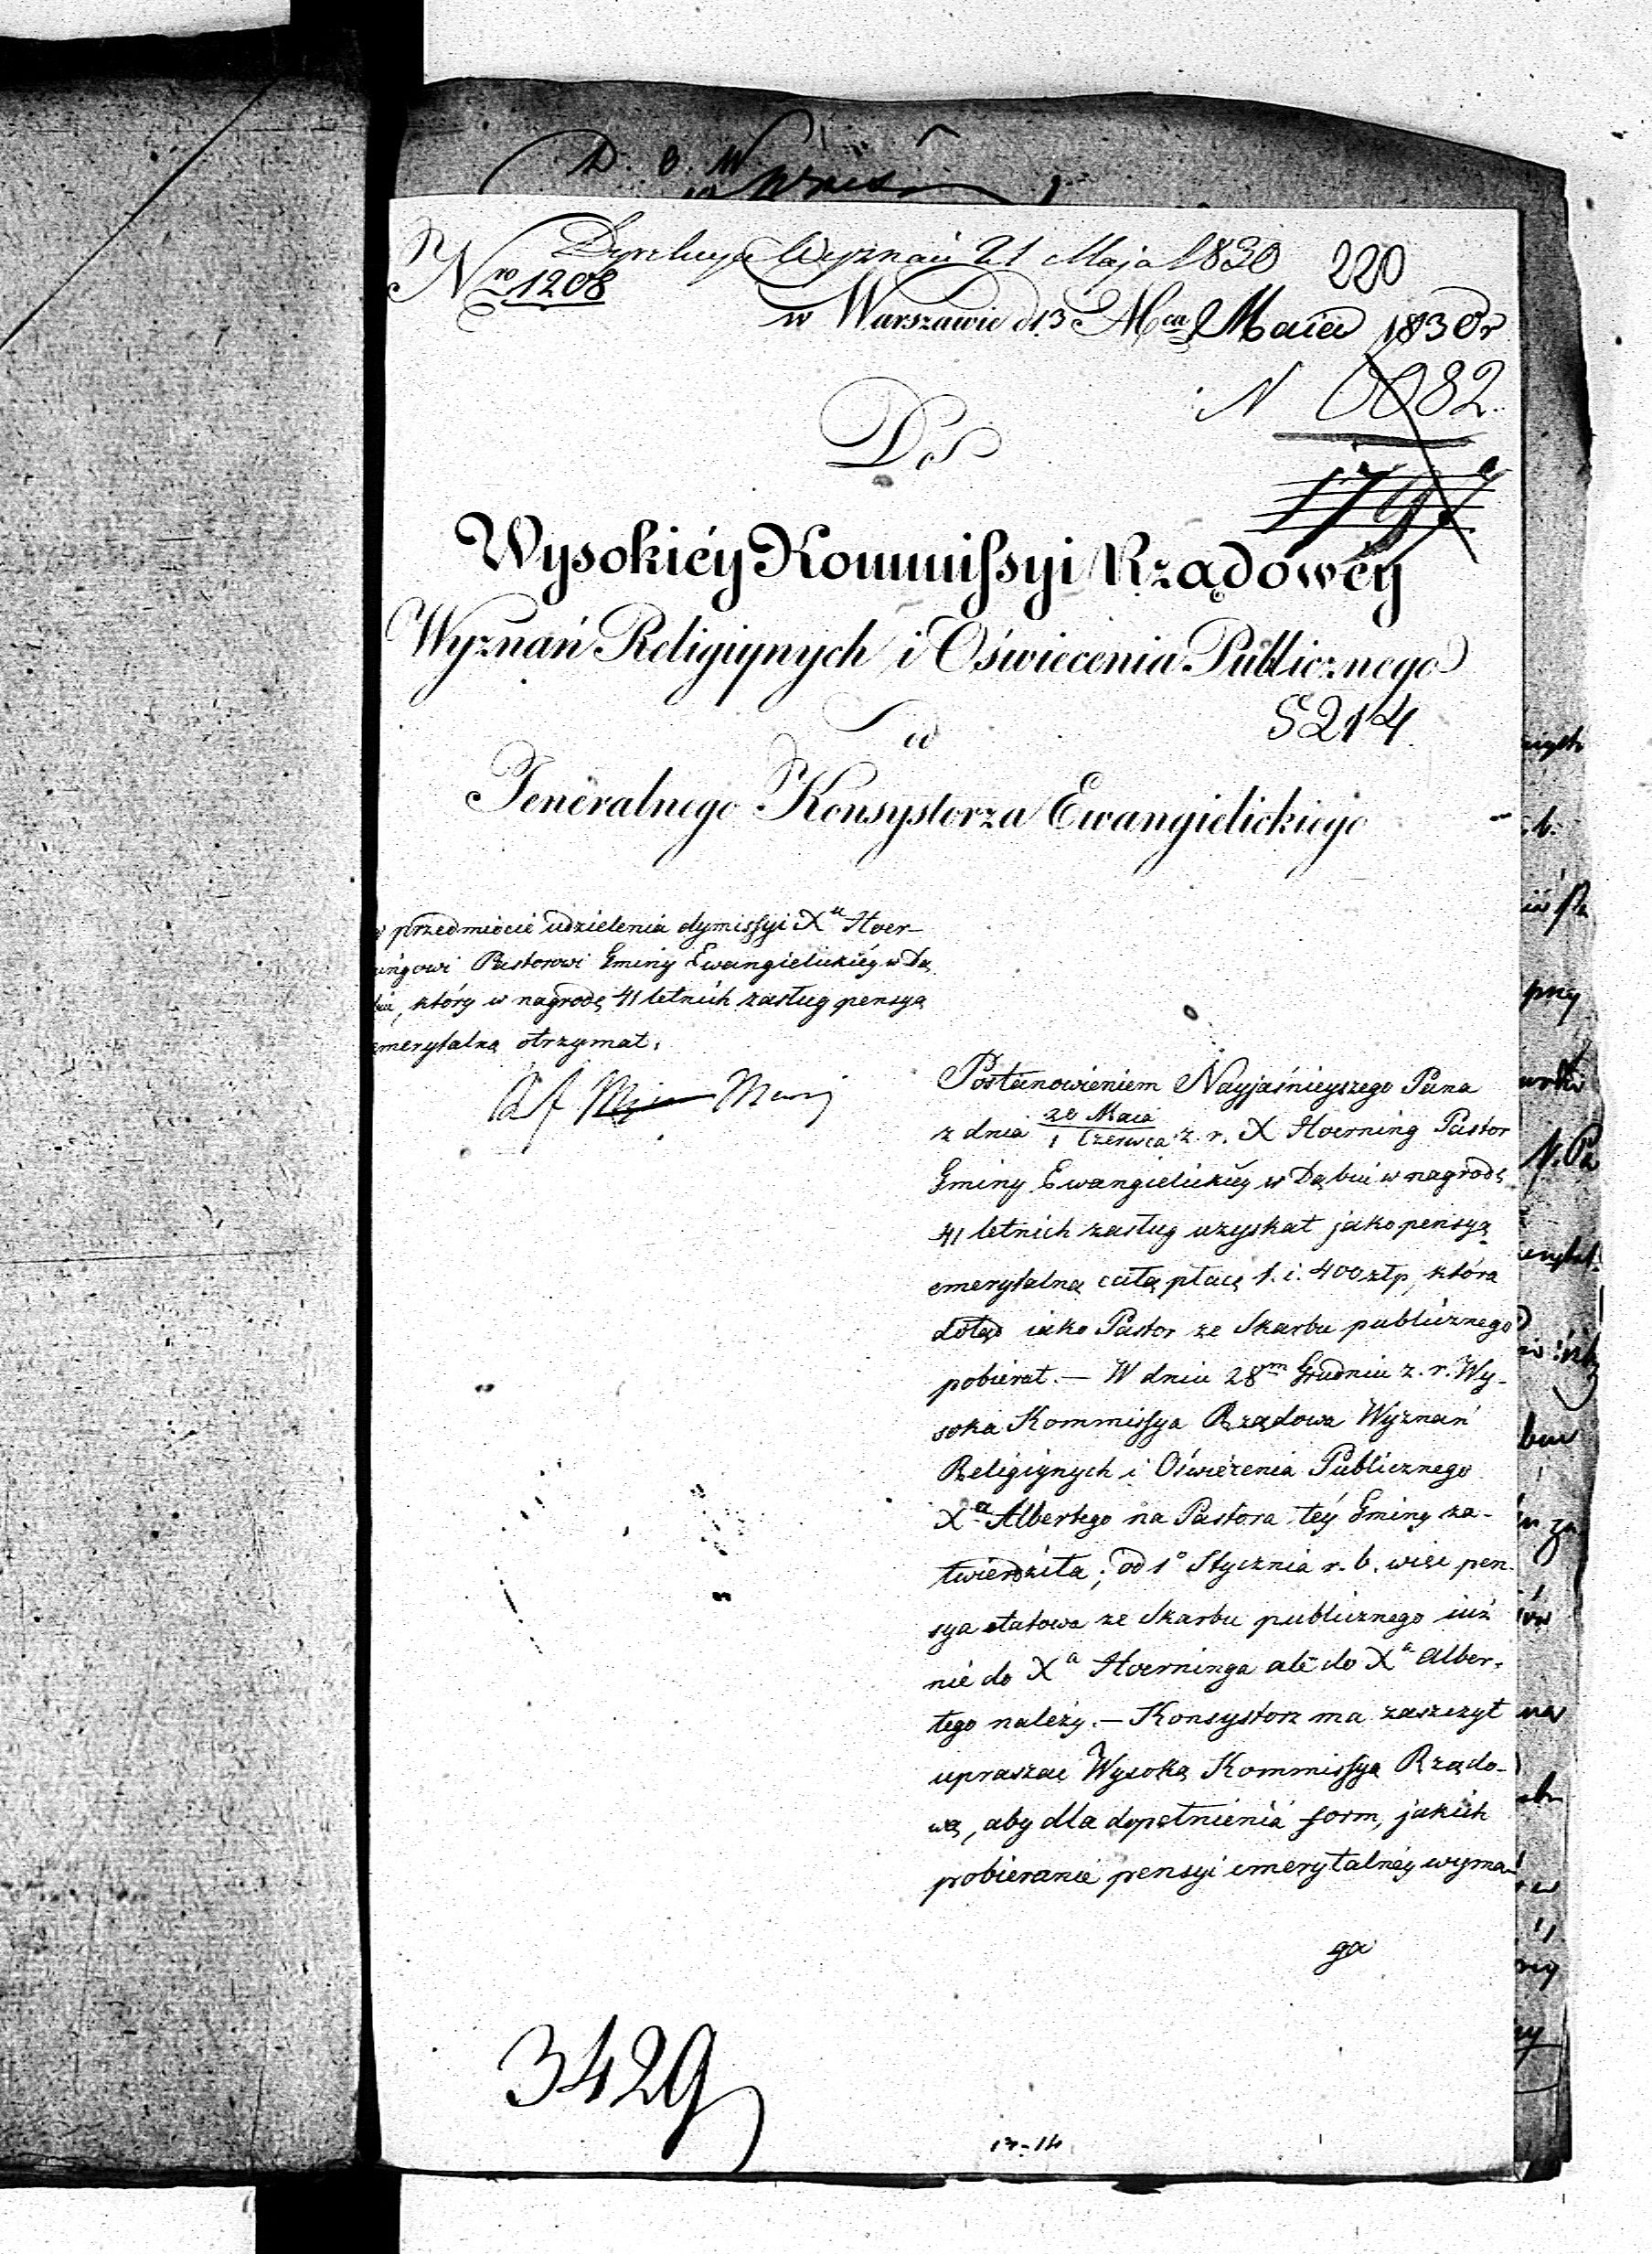 Dyrekcya Wyznań 21 Maja 1830 220
Nro 1208
w Warszawie d 13 Mca Maia 1830 r
N 6082
Do
1797
Wysokiéy Kommissyi Rządowéy
Wyznań Religiynych i Oświecenia Publicznego
5214
od
Jeneralnego Konsystorza Ewangielickiego
w przedmiocie udzielenia dymissyi Xu Hoer-
ningowi Pastorowi Gminy Ewangielickiéy w Dą
biu, który w nagrodę 41 letnich zasług pensyą
emerytalną otrzymał.
Postanowieniem Nayjaśnieyszego Pana
z dnia 20 Maia / 1 Czerwca z. r. X Hoerning Pastor
Gminy Ewangielickiéy w Dąbiu w nagrodę
41 letnich zasług uzyskał jako pensyą
emerytalną całą płacę t. i. 400 złp, którą
dotąd iako Pastor ze Skarbu publicznego
pobierał. — W dniu 28m Grudniu z. r. Wy-
soka Kommissya Rządowa Wyznań
Religiynych i Oświecenia Publicznego
Xa Albertego na Pastora téy Gminy za-
twierdziła; od 1o Stycznia r. b. więc pen-
sya etatowa ze Skarbu publicznego iuż
nie do Xa Hoerninga ale do Xa Alber-
tego należy. — Konsystorz ma zaszczyt
upraszać Wysoką Kommissyą Rządo-
wą, aby dla dopełnienia form, jakich
pobieranie pensyi emerytalnéy wyma-
ga
3429
13-14